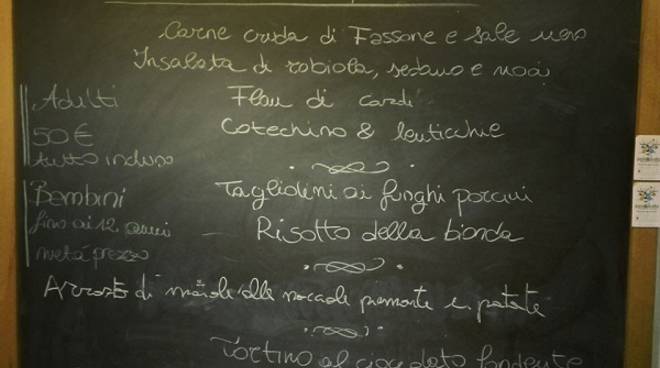 Carne cruda di Fassone e sale nero
Insalata di robiola, sedano e noci
Flan di cardi
Cotechino & lenticchie
Adulti
50 €
tutto incluso
Bambini
fino ai 12 anni
metà prezzo
Tagliolini ai funghi porcini
Risotto della bionda
Arrosto di maiale alle nocciole piemonte e patate
Tortino al cioccolato fondente